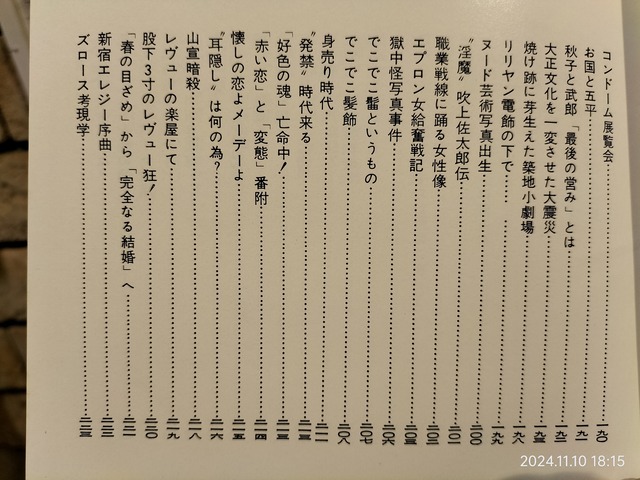 コンドーム展覧会……一九〇
お国と五平……一九一
秋子と武郎「最後の営み」とは……一九二
大正文化を一変させた大震災……一九三
焼け跡に芽生えた築地小劇場……一九八
リリヤン電飾の下で……一九九
ヌード芸術写真出生……二〇〇
〝淫魔〟吹上佐太郎伝……二〇一
職業戦線に踊る女性像……二〇二
エプロン女給奮戦記……二〇三
獄中怪写真事件……二〇六
でこでこ髷というもの……二〇七
でこでこ髪飾……二〇八
身売り時代……二一一
〝発禁〟時代来る……二一三
「好色の魂」亡命中!……二一三
「赤い恋」と「変態」番附……二一四
懐しの恋よメーデーよ……二一五
〝耳隠し〟は何の為?……二一六
山宣暗殺……二一八
レヴューの楽屋にて……二一九
股下3寸のレヴュー狂!……二二〇
「春の目ざめ」から「完全なる結婚」へ……二二一
新宿エレジー序曲……二二三
ズロース考現学……二二三
2024.11.10 18:15